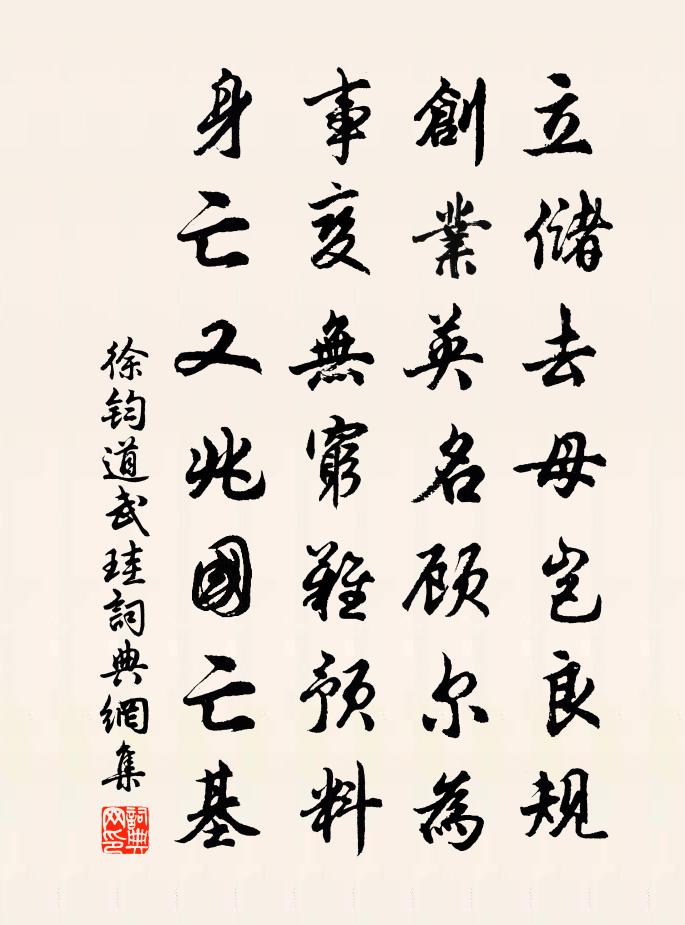 立儲去母豈良規
創業英名顧尔為
事變無窮難預料
身亡又兆國亡基
徐鈞道武珪詞典網集
詞典網印